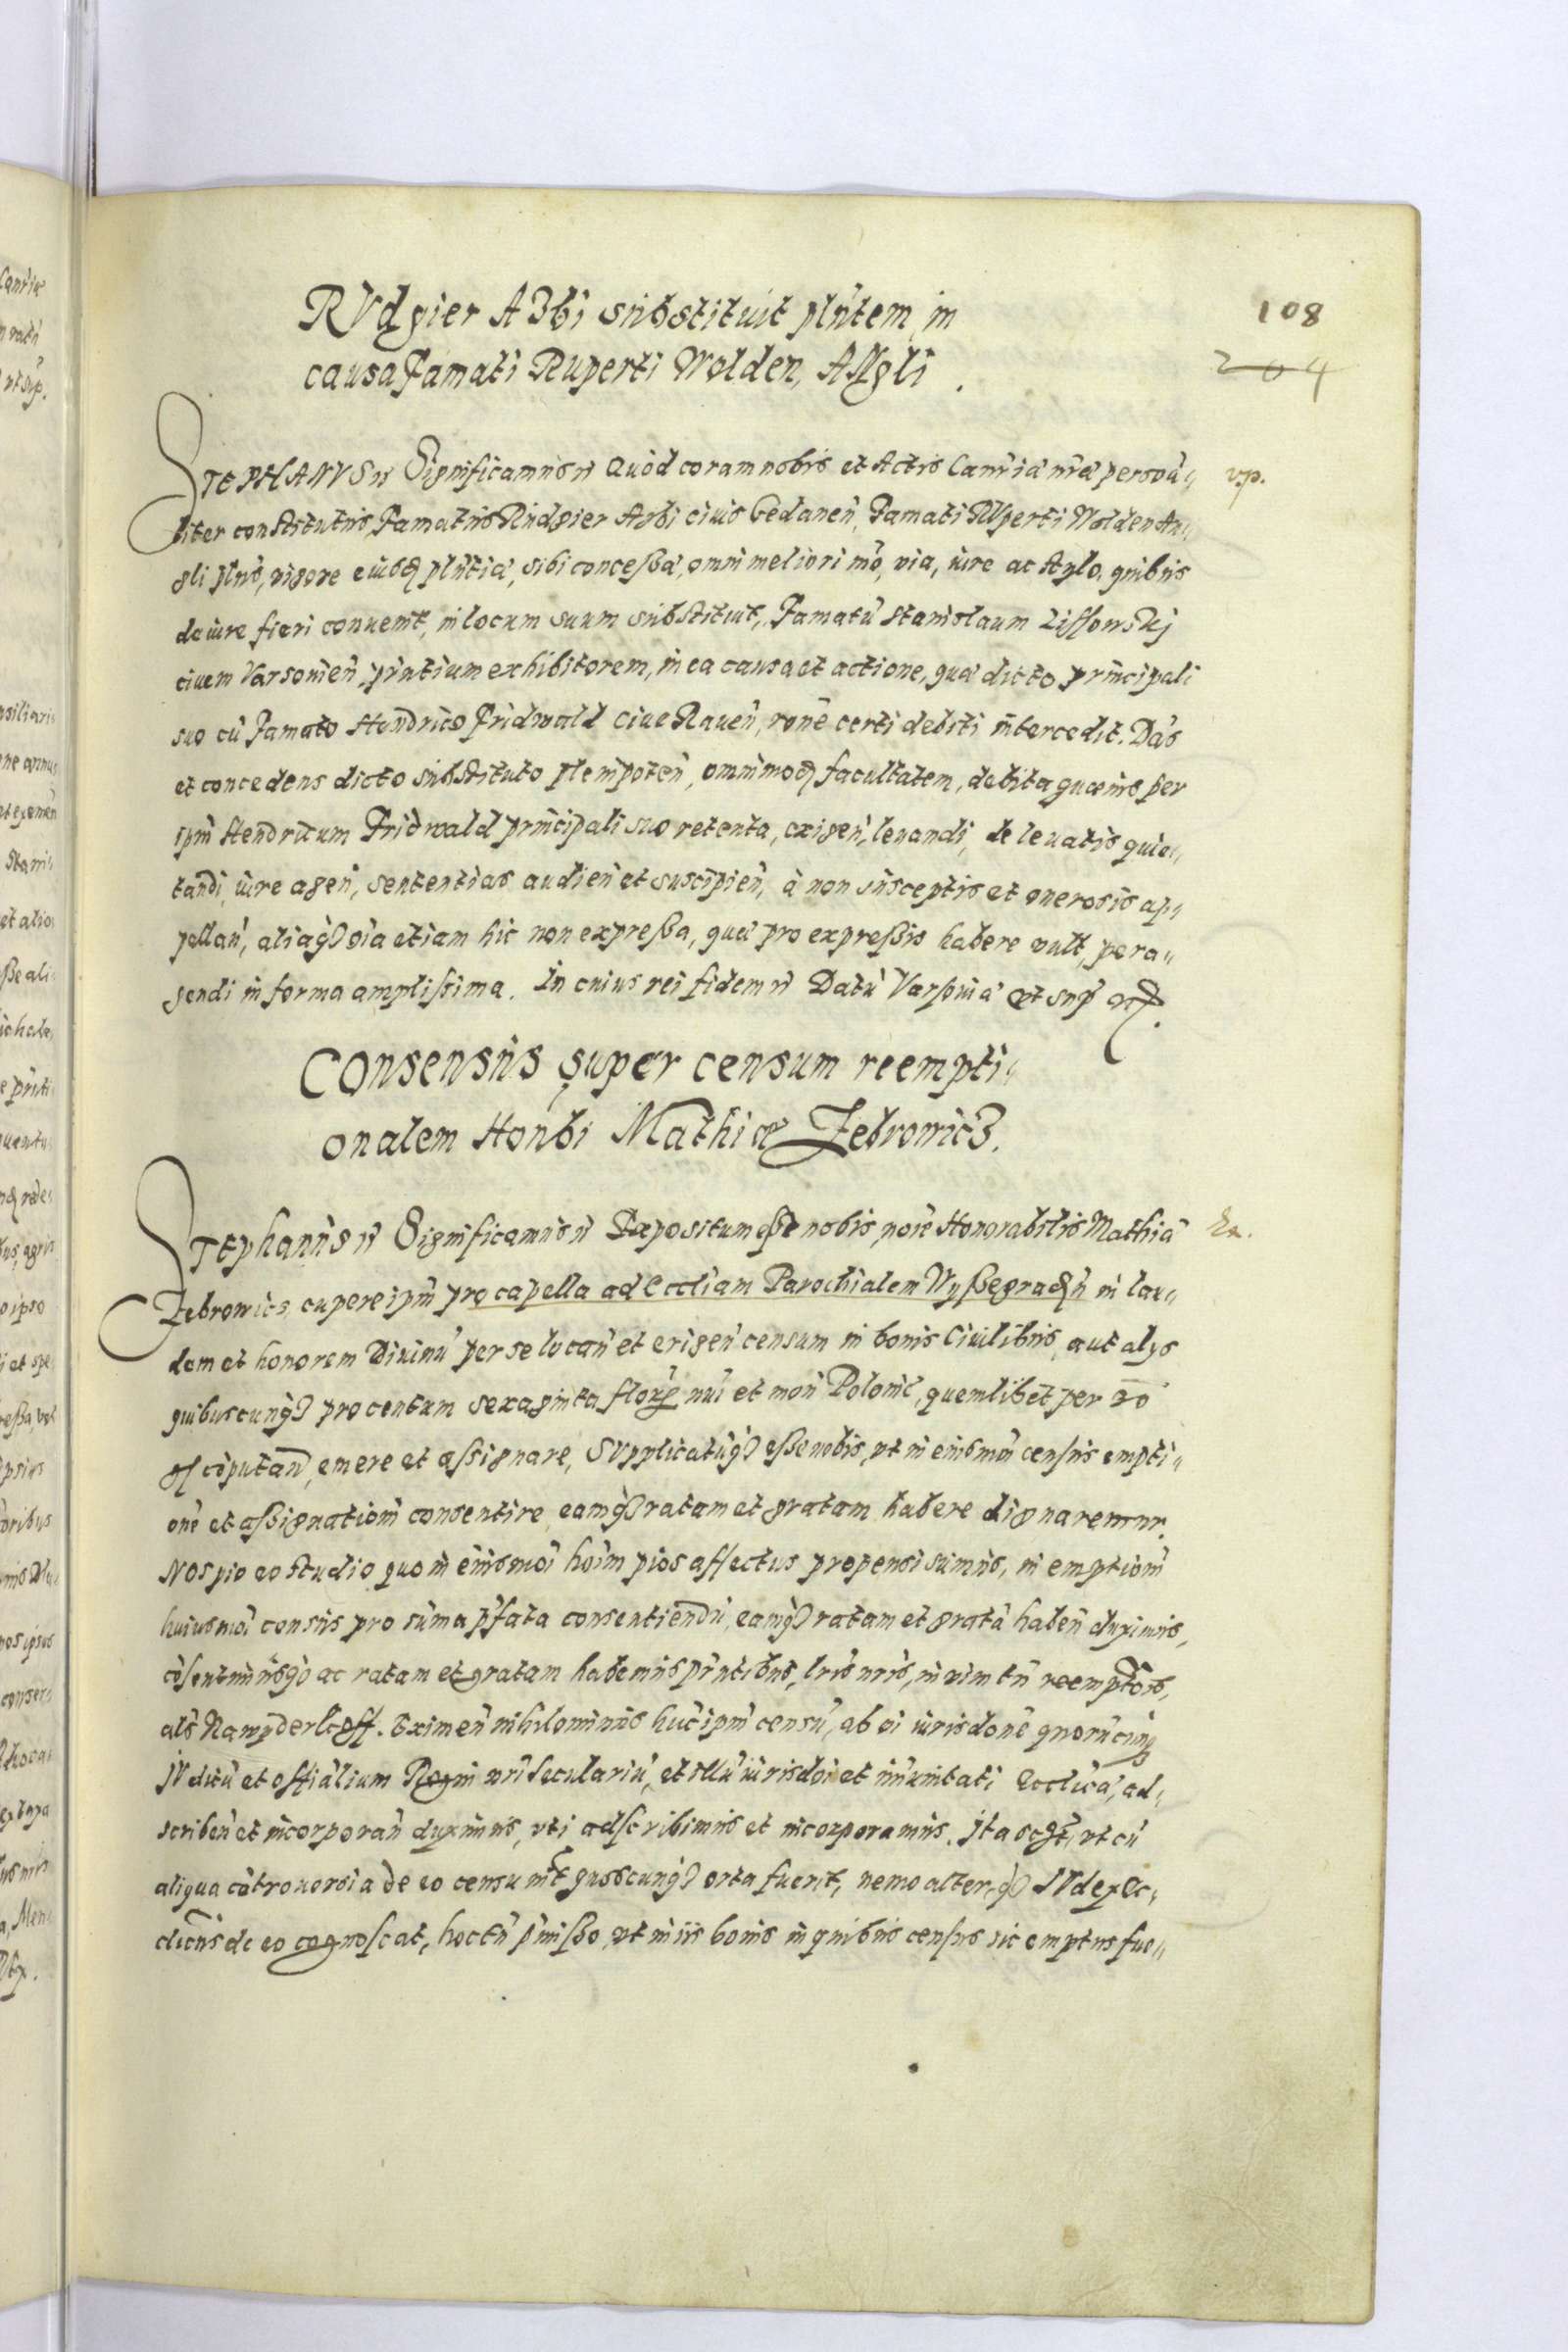 108
204
RVdgier A3bi substituit plntem in
causa Famati Ruperti Wolden, ANgli.
STEPHANVS Significamus Quod coram nobis et Actis Canriæ nræ persona„
v.p.
liter constitutus Famatus Rudgier Azbi civis Gedanen, Famati RVperti Wolden An„
gli plnò, vigore eiusdem plntiæ, sibi concessæ, omni meliori mo, via, iure ac stylo, quibus
de iure fieri convenit, in locum suum substituit, Famatū Stanislaum
civem Varsovien, pñtium exhibitorem, in ea causa et actione, quæ dicto principali
suo cū Famato Hendrico Fridwald cive Raven, rone certi debiti intercedit. Dās
et concedens dicto substituto plenipoten, omnimodam facultatem, debita quævis per
ipm Hendricum Fridwald principali suo retenta, exigen, levandi, de levatis quie„
tandi, iure agen, sententias audien et suscipien, à non susceptis et onerosis ap„
pellan, aliaq oia etiam hic non expreßa, quæ pro expreßis habere vult, pera„
gendi in forma amplissima. In cuius rei fidem Datū Varsoviæ ut sup
COnsensus super censum reempti„
onalem Honbi Mathiæ Zebrowicz.
STEphanus Significamus Expositum eße nobis, noie Honorabilis Mathiæ
Zebrowicz cupere ipm pro capella ad Eccliam Parochialem Wyßegradn in lau„
dem et honorem Divinū per se locan et erigen censum in bonis Civilibus, aut alys
quibuscunq pro centum sexaginta flor nui et mon Polonic, quemlibet per 30
gr cōputan, emere et aßignare, SVpplicatūq eße nobis, vt in eiusmoi census empti„
one et aßignationi consentire eamq ratam et gratam habere dignaremur.
NOS pio eo studio quo in eiusmoi hoim pios affectus propensi sumus, in emptioni
huiusmoi census pro suma pfata consentiendū eamq ratam et gratā haben duximus,
cōsentimusq ac ratam et gratam habemus pñtibus lris nris, in vim tn reemptōis,
als Exnimen nihilominus huc ipm censū, ab oi iurisdone quorūcunq
IVdicū et offialium Regni nri seculariū, et illū iurisdoi et immunitati Ecclicæ, ad„
scriben et incorporan duximus, vti adscribimus et incorporamus. Ita vt cū
aliqua cōtroversia de eo censu int quoscunq orta fuerit, nemo alter, q IVdex Ec„
clicus de eo cognoscat, hoc tn pmißo, vt in iis bonis in quibus census sic emptus fue„